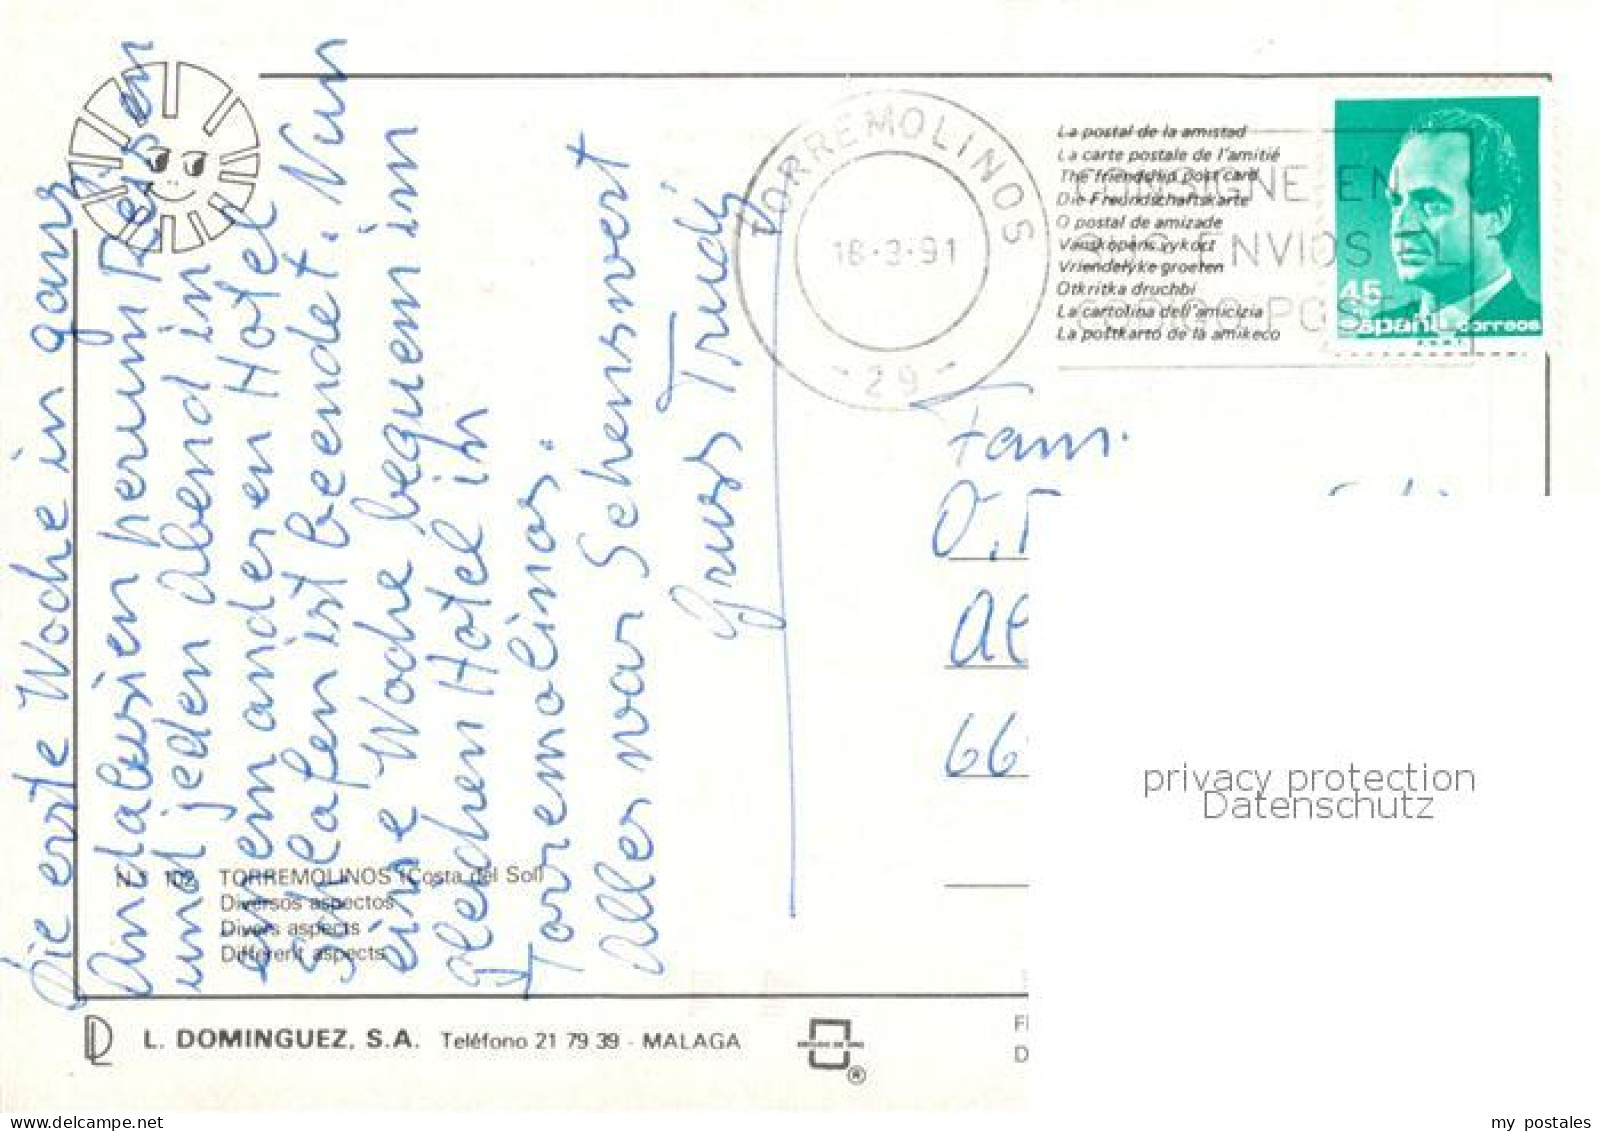 Die erste Woche in ganz
Andalusien herum Reisen
und jeden Abend in
einem anderen Hotel
Schlafen ist beendet. Nun
eine Woche bequem im
gleichen Hotel in
Torremolinos.
Alles war Sehenswert
Gruss Trudy
TORREMOLINOS
18·3·91
- 29 -
La postal de la amistad
La carte postale de l'amitié
The friendship post card
Die Freundschaftskarte
O postal de amizade
Vanskopens vykort
Vriendelyke groeten
Otkritka druchbi
La cartolina dell'amicizia
La postkarto de la amikeco
CONSIGNE EN
SUS ENVIOS EL
CODIGO POSTAL
45
españa correos
Fam.
O.
Al
66
privacy protection
Datenschutz
N.º 102 TORREMOLINOS (Costa del Sol)
Diversos aspectos
Divers aspects
Different aspects
L. DOMINGUEZ, S.A. Teléfono 21 79 39 - MALAGA
®
delcampe.net
my_postales